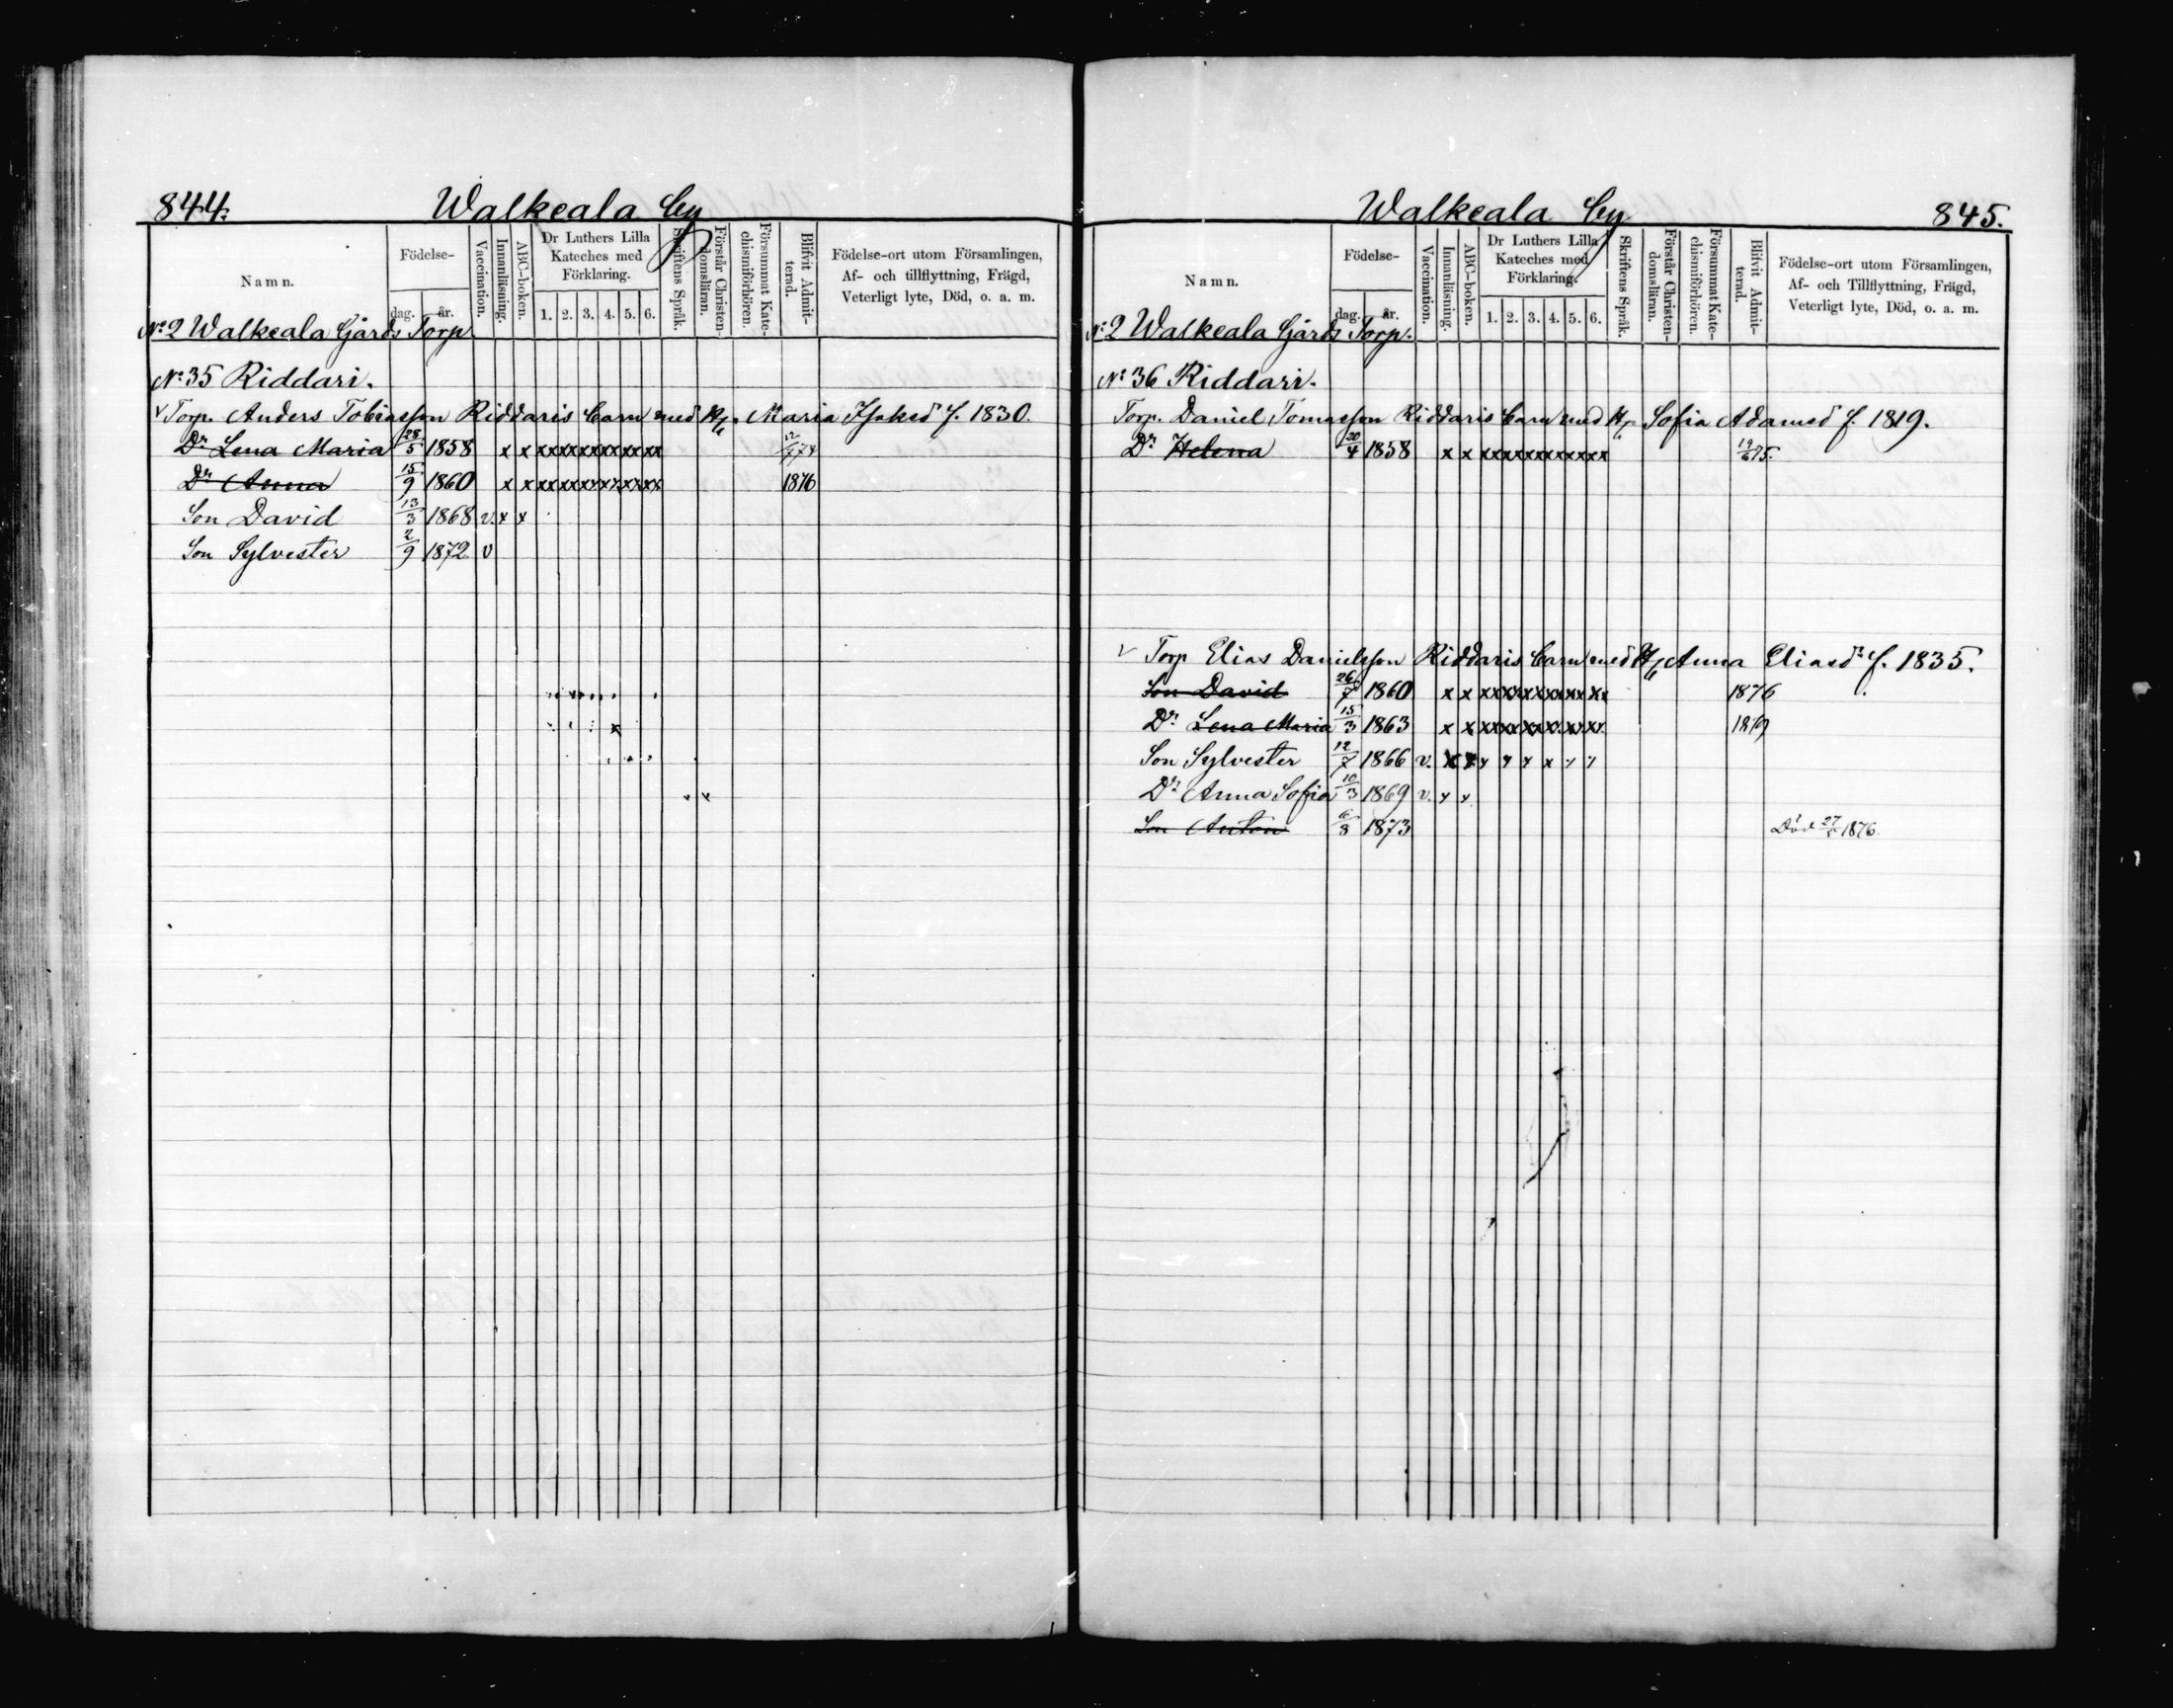 844.
Walkeala by
Namn.
Födelse-
dag. år.
Vaccination.
Innanläsning.
ABC-boken.
Dr Luthers Lilla
Kateches med
Förklaring.
1. 2. 3. 4. 5. 6.
Skriftens Språk.
Förstår Christen-
domsläran.
Försummat Kate-
chismiförhören.
Blifvit Admit-
terad.
Födelse-ort utom Församlingen,
Af- och tillflyttning, Frägd,
Veterligt lyte, Död, o. a. m.
No 2 Walkeala Gårds Torp
No 35 Riddari.
v Torp. Anders Tobiasson Riddaris barn med H. Maria Isaksd f. 1830.
Dr Lena Maria 28/5 1858 x x xxxxxxxxxxxx
Dr Anna 15/9 1860 x x xxxxxxxxxxxx 1876
Son David 13/3 1868 v. x x
Son Sylvester 2/9 1872 v
Walkeala by
845.
Namn.
Födelse-
dag. år.
Vaccination.
Innanläsning.
ABC-boken.
Dr Luthers Lilla
Kateches med
Förklaring.
1. 2. 3. 4. 5. 6.
Skriftens Språk.
Förstår Christen-
domsläran.
Försummat Kate-
chismiförhören.
Blifvit Admit-
terad.
Födelse-ort utom Församlingen,
Af- och Tillflyttning, Frägd,
Veterligt lyte, Död, o. a. m.
No 2 Walkeala Gårds Torp.
No 36 Riddari.
Torp. Daniel Tomasson Riddaris barn med H. Sofia Adamsd f. 1819.
Dr Helena 20/4 1858 x x xxxxxxxxxxxx 19/6 75.
v Torp Elias Danielsson Riddaris barn med H. Anna Eliasdr f. 1835.
Son David 26/7 1860 x x xxxxxxxxxxxx 1876
Dr Lena Maria 15/3 1863 x x xxxxxxxxxxxx
Son Sylvester 12/7 1866 v. x x x x x x x x
Dr Anna Sofia 10/3 1869 v. x x
Son Anton 6/8 1873 Död 27/5 1876.